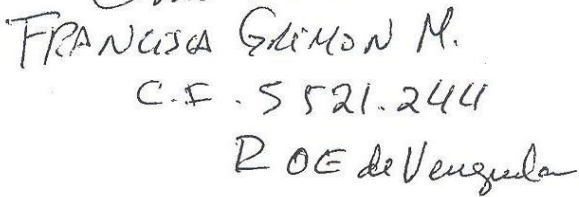 FRANCISCA GRIMON M.
C.I. 5521.244
R OE de Venezuela